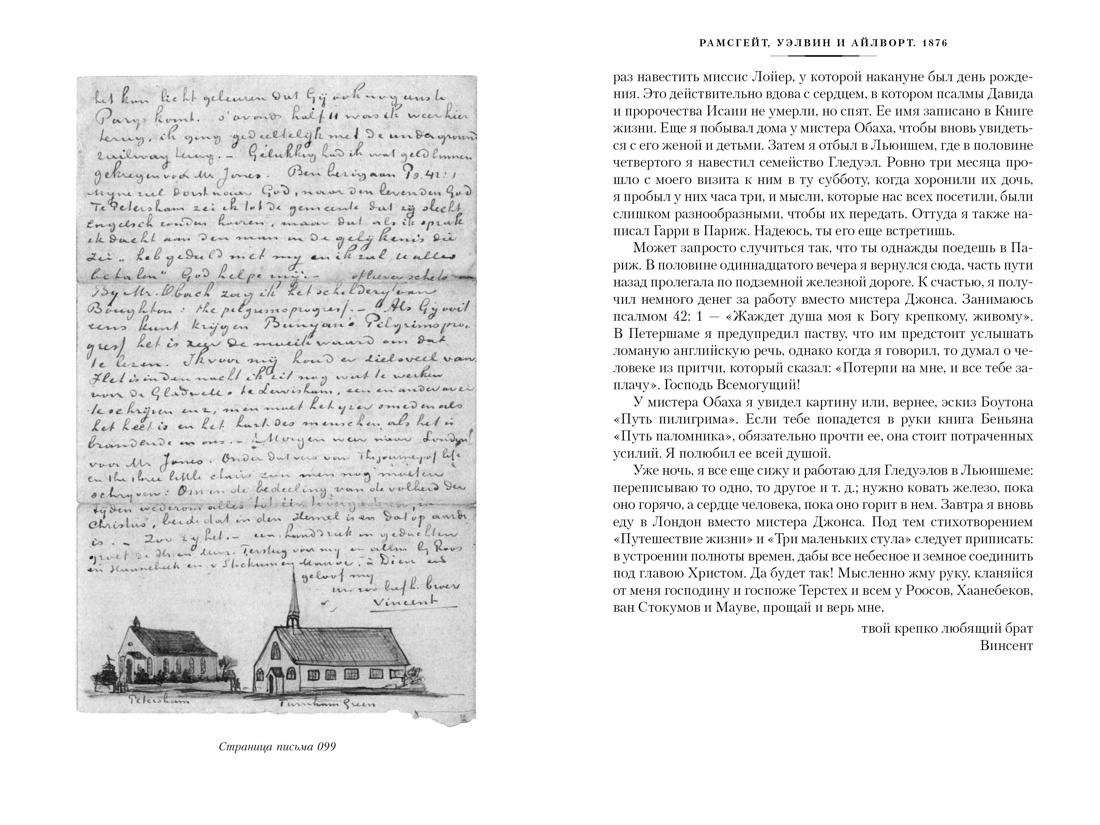 het kan licht gebeuren dat Gij ook nog eens te
Parijs komt. s'avonds half 11 was ik weer hier
terug, ik ging gedeeltelijk met de underground
railway terug. — Gelukkig had ik wat geld binnen
gekregen voor Mr. Jones. Ben bezig aan Ps. 42:1
Mijne ziel dorst naar God, naar den levenden God
Te Petersham zei ik tot de gemeente dat zij slecht
Engelsch zouden hooren, maar dat als ik sprak
ik dacht aan den man in de gelijkenis die
zei „heb geduld met mij en ik zal U alles
betalen" God helpe mij. —
By Mr. Obach zag ik het schilderij van
Boughton: the pilgrimsprogress. — Als Gij ooit
eens kunt krijgen Bunyan's Pilgrimspro-
gress het is zeer de moeite waard om dat
te lezen. Ik voor mij houd er zielsveel van
Het is in den nacht ik zit nog wat te werken
voor de Gladwells te Lewisham, een en ander over
te schrijven enz, men moet het ijzer smeden als
het heet is en het hart des menschen als het is
brandende in ons. — Morgen weer naar Londen
voor Mr. Jones. Onder dat vers van The journey of life
en the three little chairs zou men nog moeten
schrijven: Om in de bedeeling van de volheid der
tijden wederom alles tot één te vergaderen in
Christus, beide dat in den Hemel is en dat op aarde
is. — Zoo zij het. — een handdruk in gedachten
groet de Heer & Mevr. Tersteeg van mij en allen bij Roos
en Haanebeek en v. Stockum en Mauve, à Dieu en
geloof mij
uw zoo liefh. broer
Vincent
Petersham
Turnham Green
Страница письма 099
РАМСГЕЙТ, УЭЛВИН И АЙЛВОРТ. 1876
раз навестить миссис Лойер, у которой накануне был день рожде-
ния. Это действительно вдова с сердцем, в котором псалмы Давида
и пророчества Исаии не умерли, но спят. Ее имя записано в Книге
жизни. Еще я побывал дома у мистера Обаха, чтобы вновь увидеть-
ся с его женой и детьми. Затем я отбыл в Льюишем, где в половине
четвертого я навестил семейство Гледуэл. Ровно три месяца про-
шло с моего визита к ним в ту субботу, когда хоронили их дочь,
я пробыл у них часа три, и мысли, которые нас всех посетили, были
слишком разнообразными, чтобы их передать. Оттуда я также на-
писал Гарри в Париж. Надеюсь, ты его еще встретишь.
Может запросто случиться так, что ты однажды поедешь в Па-
риж. В половине одиннадцатого вечера я вернулся сюда, часть пути
назад пролегала по подземной железной дороге. К счастью, я полу-
чил немного денег за работу вместо мистера Джонса. Занимаюсь
псалмом 42: 1 — «Жаждет душа моя к Богу крепкому, живому».
В Петершаме я предупредил паству, что им предстоит услышать
ломаную английскую речь, однако когда я говорил, то думал о че-
ловеке из притчи, который сказал: «Потерпи на мне, и все тебе за-
плачу». Господь Всемогущий!
У мистера Обаха я увидел картину или, вернее, эскиз Боутона
«Путь пилигрима». Если тебе попадется в руки книга Беньяна
«Путь паломника», обязательно прочти ее, она стоит потраченных
усилий. Я полюбил ее всей душой.
Уже ночь, я все еще сижу и работаю для Гледуэлов в Льюишеме:
переписываю то одно, то другое и т. д.; нужно ковать железо, пока
оно горячо, а сердце человека, пока оно горит в нем. Завтра я вновь
еду в Лондон вместо мистера Джонса. Под тем стихотворением
«Путешествие жизни» и «Три маленьких стула» следует приписать:
в устроении полноты времен, дабы все небесное и земное соединить
под главою Христом. Да будет так! Мысленно жму руку, кланяйся
от меня господину и госпоже Терстех и всем у Роосов, Хаанебеков,
ван Стокумов и Мауве, прощай и верь мне,
твой крепко любящий брат
Винсент